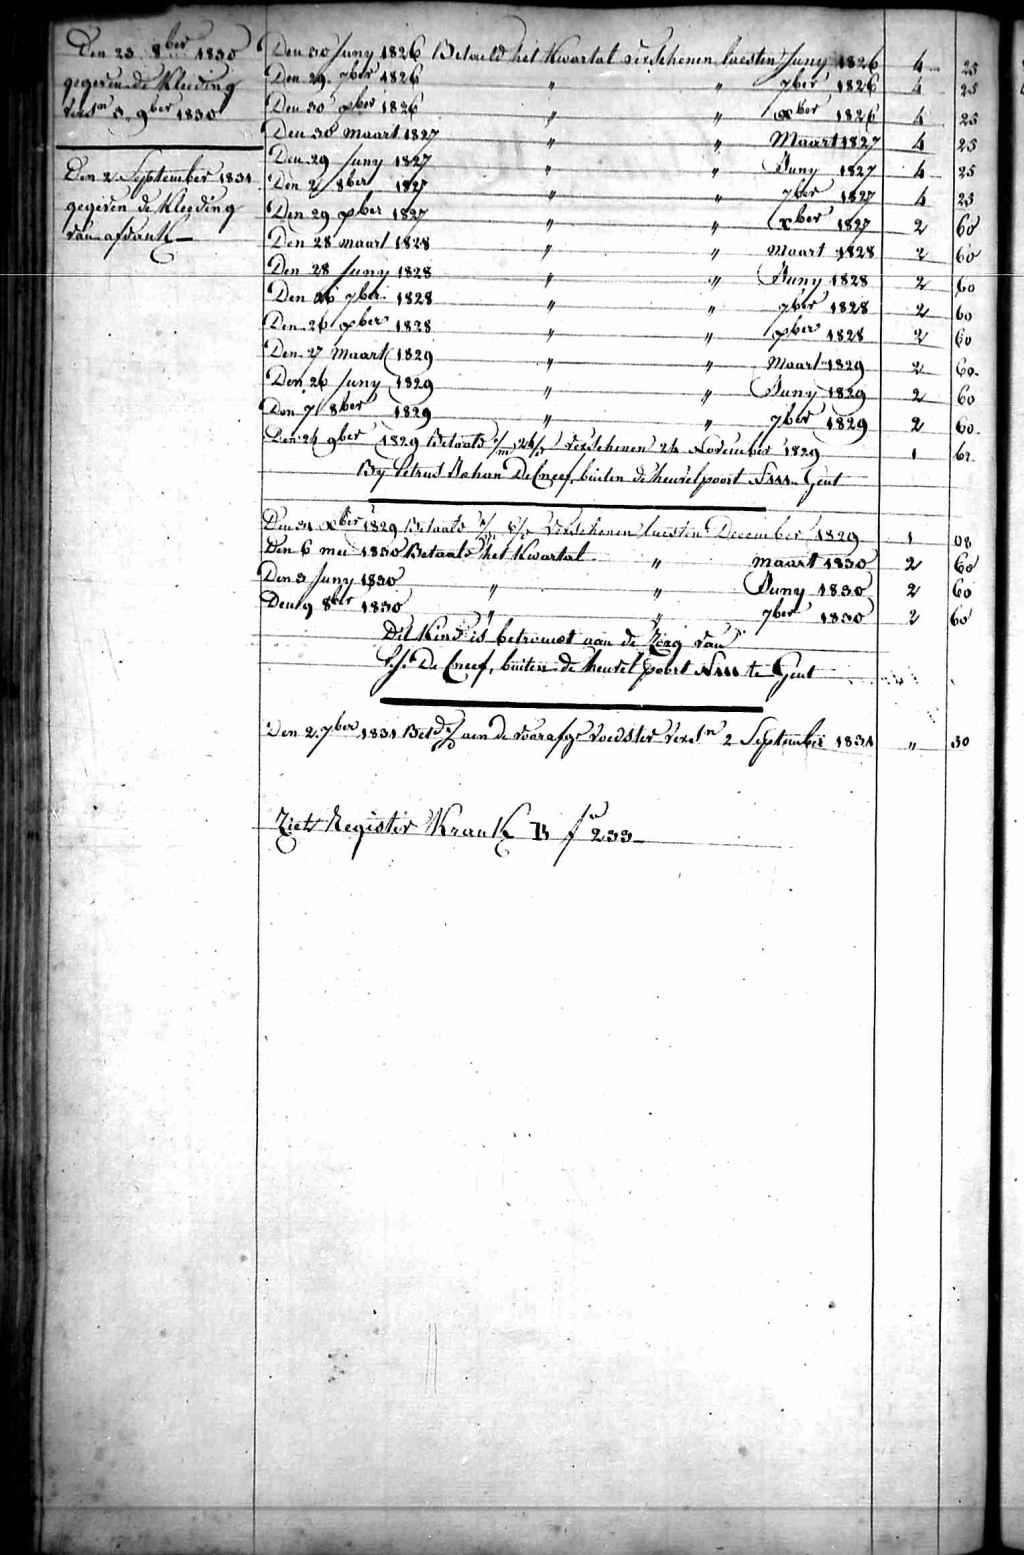 Den 23 8ber 1830
gegeven de Kleeding
versn 3. 9ber 1830
Den 2 September 1831
gegeven de Kleeding
van afdank
Den 30 Juny 1826 Betaeld het Kwartal verschenen laesten Juny 1826 4 25
Den 29. 7ber 1826 " " 7ber 1826 4 25
Den 30 xber 1826 " " xber 1826 4 25
Den 30 maart 1827 " " Maart 1827 4 25
Den 29 Juny 1827 " " Juny 1827 4 25
Den 2 8ber 1827 " " 7ber 1827 4 25
Den 29 xber 1827 " " xber 1827 2 60
Den 28 maart 1828 " " Maart 1828 2 60
Den 28 Juny 1828 " " Juny 1828 2 60
Den 26 7ber 1828 " " 7ber 1828 2 60
Den 26 xber 1828 " " xber 1828 2 60
Den 27 Maart 1829 " " Maart 1829 2 60
Den 26 Juny 1829 " " Juny 1829 2 60
Den 7 8ber 1829 " " 7ber 1829 2 60
Den 24 9ber 1829 Betaald verschenen 24 November 1829 1
By Petrus De Cneef, buiten de heuvelpoort Gent
Den 31 xber 1829 Betaald verschenen laesten December 1829 1 08
Den 6 mei 1830 Betaald het Kwartal " maart 1830 2 60
Den 3 Juny 1830 " " Juny 1830 2 60
Den 9 8ber 1830 " " 7ber 1830 2 60
Dit Kind is betrouwt aan de Zorg van
De Cneef, buiten de heuvel poort te Gent
Den 2. 7ber 1831 Betd aen de voorafge voedster versn 2 September 1831 " 30
Ziet Register Krank B fo 233